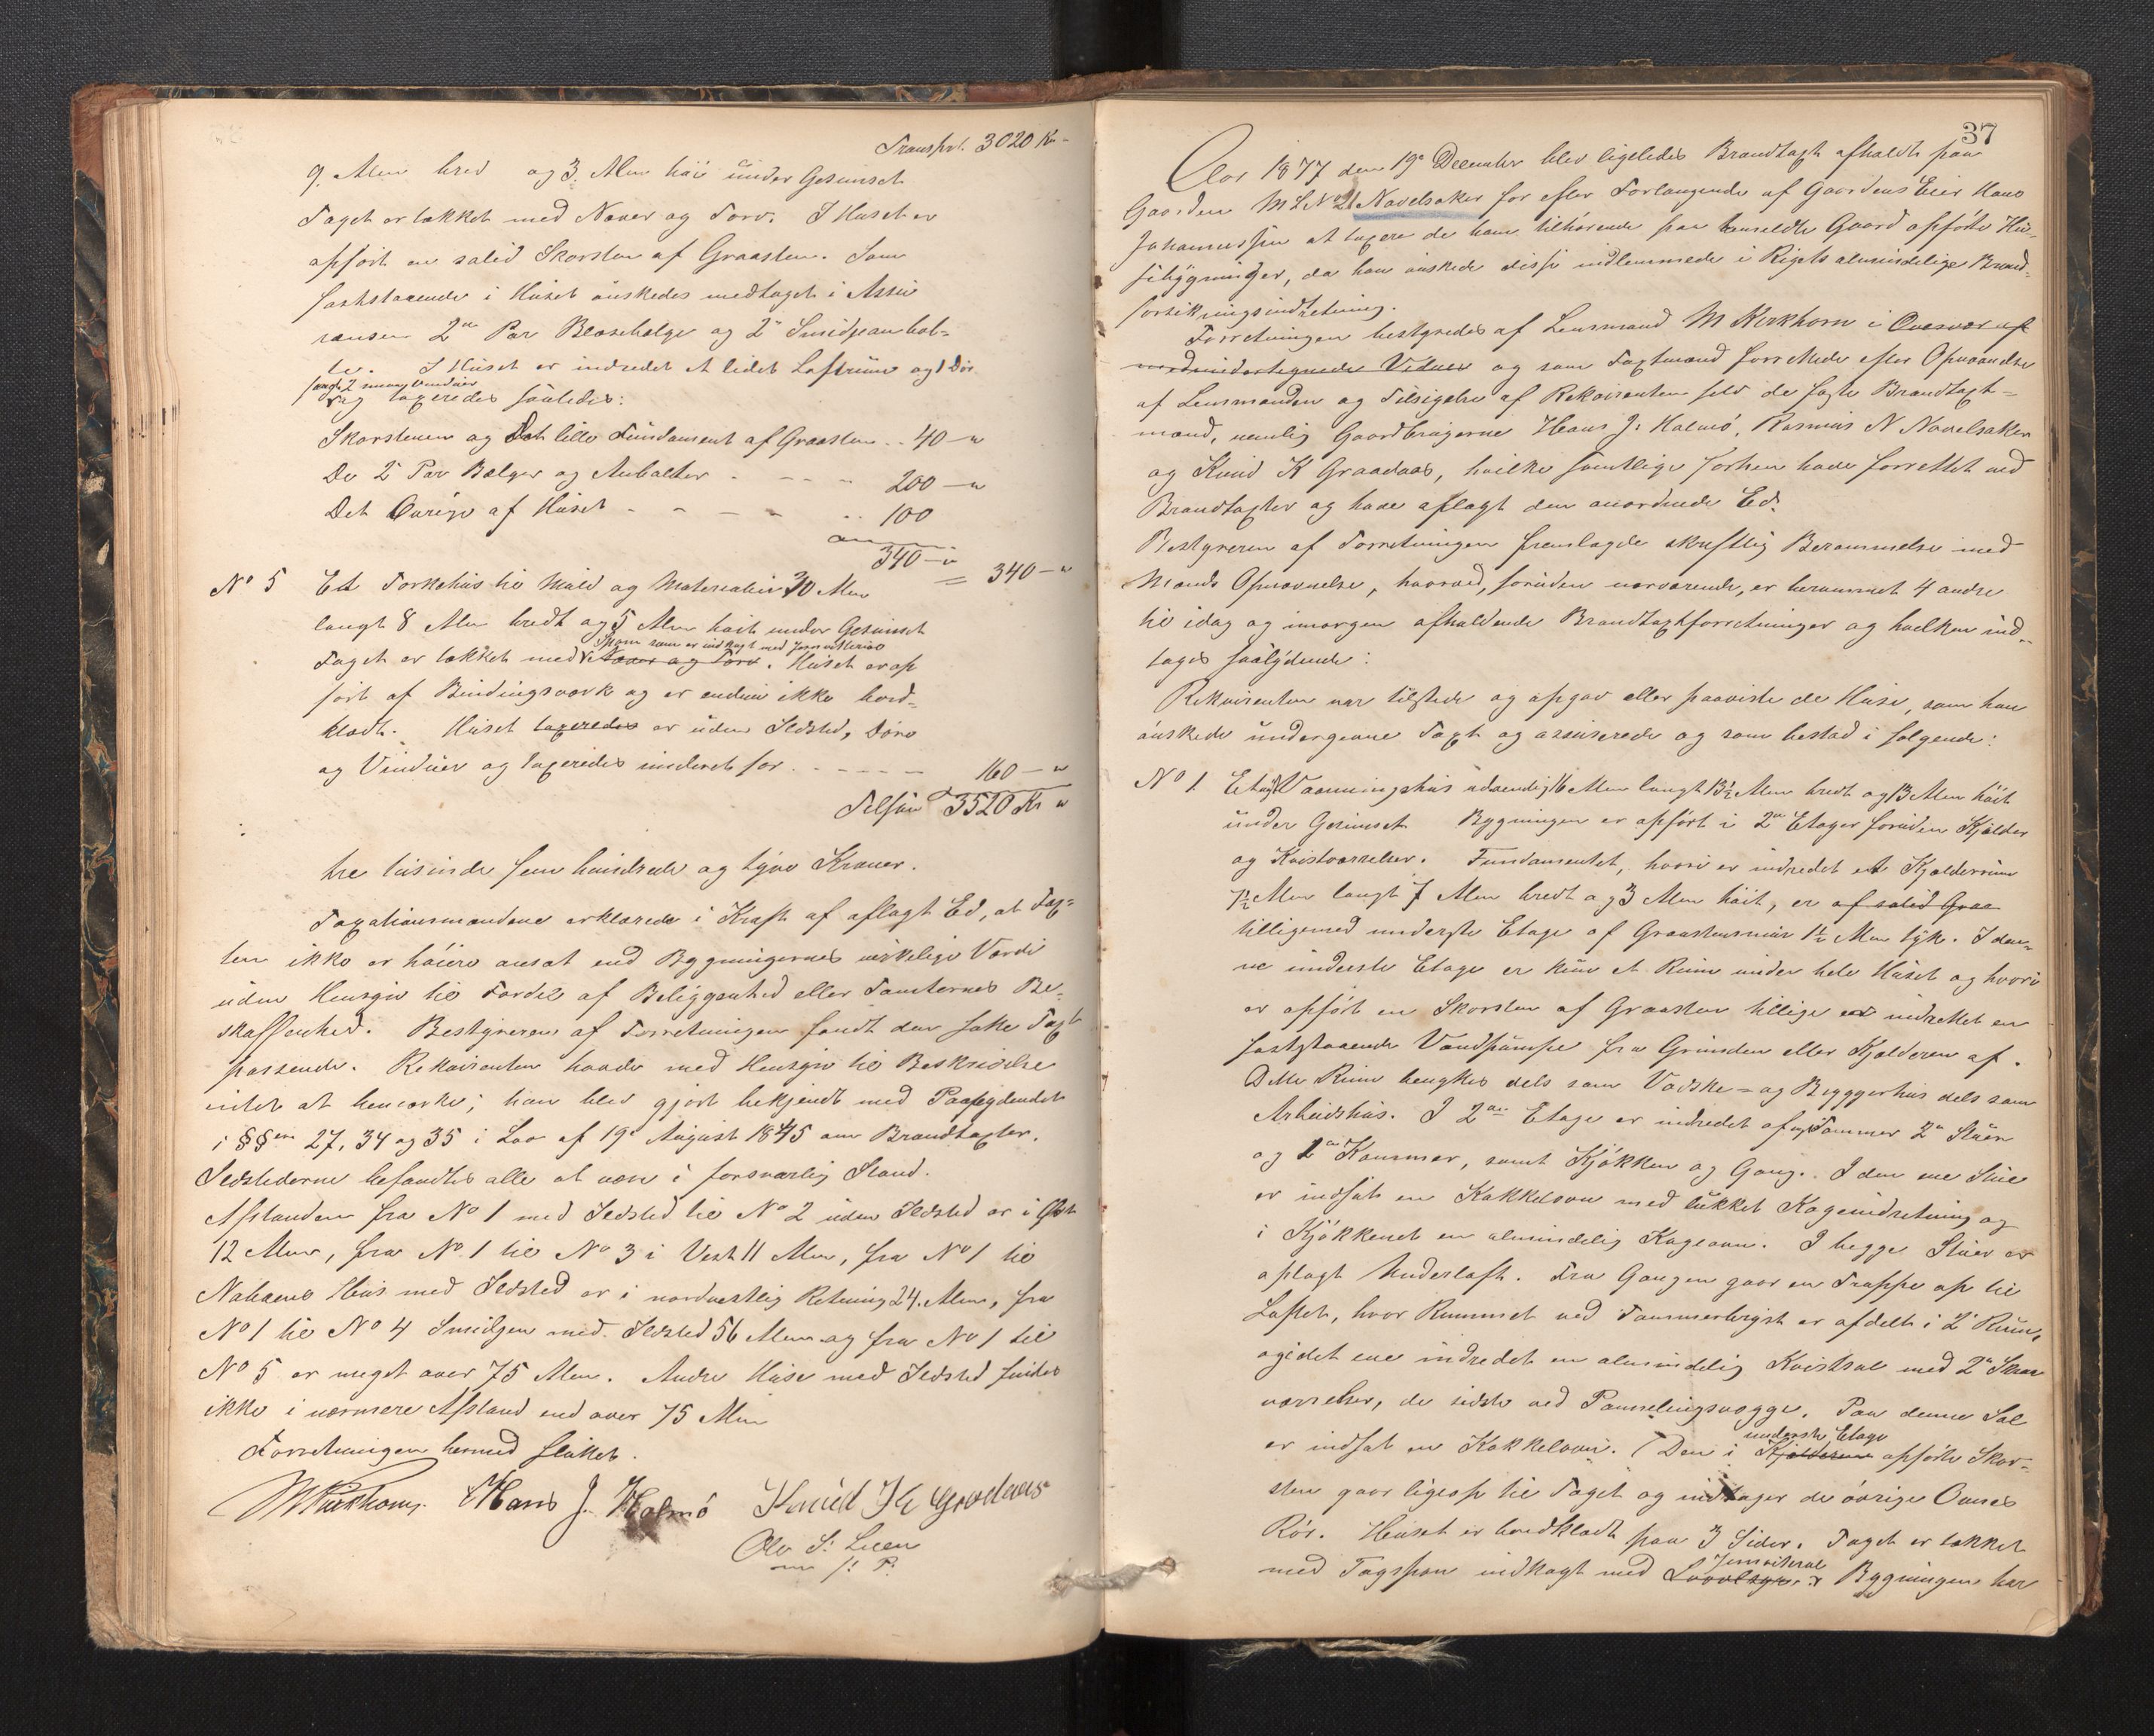 Transport 3020 Kr
9 Alen bred og 3 Alen høi under Gesimset
Taget er tækket med Næver og Torv. I Huset er
opført en solid Skorsten af Graasten. Som
faststaaende i Huset önskedes medtaget i Assu
ransen 2de Par Blæsebælge og 2 Smidjeambol-
te. I Huset er indredet et lidet Loftrum og 1 Dör
samt 2 smaa Vinduer
og taxeredes saaledes:
Skorstenen og Det lille Fundament af Graasten .. 40 - "
De 2 Par Bælger og Ambolter - - - - 200 - "
Det Övrige af Huset - - - - .. 100
340 - "
= 340 - "
No 5 Et Torkehus til Muld og Materialier 30 Alen
langt 8 Alen bredt og 5 Alen høit under Gesimset
Spaan som er indkogt med Jernvitriol
Taget er tækket med Næver og Torv. Huset er op
ført af Bindingsværk og er endnu ikke bord-
klædt. Huset taxeredes er uden Ildsted, Döre
og Vinduer og taxeredes inderet for - - - - - 160 - "
Tilsam 3520 Kr "
tre tusinde fem hundrede og tyve Kroner.
Taxationsmændene erklærede i Kraft af aflagt Ed, at Tax-
ten ikke er høiere ansat end Bygningernes virkelige Værdi
uden Hensyn til Fordel af Beliggenhed eller Tomternes Be-
skaffenhed. Bestyreren af Forretningen fandt den satte Taxt
passende. Rekvirenten havde med Hensyn til Beskrivelse
intet at bemærke; han blev gjort bekjendt med Paabydendet
i §§erne 27, 34 og 35 i Lov af 19de August 1845 om Brandtaxter.
Ildstederne befandtes alle at være i forsvarlig Stand.
Afstanden fra No 1 med Ildsted til No 2 uden Ildsted er i Øst
12 Alen, fra No 1 til No 3 i Vest 11 Alen, fra No 1 til
Naboens Hus med Ildsted er i nordvestlig Retning 24 Alen, fra
No 1 til No 4 Smidjen med Ildsted 56 Alen og fra No 1 til
No 5 er meget over 75 Alen. Andre Huse med Ildsted findes
ikke i nærmere Afstand end over 75 Alen
Forretningen hermed sluttet.
M Kirkhorn. Hans J. Holmö Knud K Graadaas
Ole S. Lien
m. f. P.
37
Aar 1877 den 19de December blev ligeledes Brandtaxt afholdt paa
Gaarden M L No 21 Navelsaker for efter Forlangende af Gaardens Eier Hans
Johannessen at taxere de ham tilhørende paa bemeldte Gaard opførte Hus-
sebygninger, da han önskede disse indlemmede i Rigets almindelige Brand-
forsikringsindretning.
Forretningen bestyredes af Lensmand M Kirkhorn i Overvær af
medundertegnede Vidner og som Taxtmænd forrettede efter Opnævnelse
af Lensmanden og Tilsigelse af Rekvirenten selv de faste Brandtaxt-
mænd, nemlig Gaardbrugerne Hans J. Holmö, Rasmus N Navelsaker
og Knud K Graadaas, hvilke samtlige forhen have forrettet ved
Brandtaxter og have aflagt den anordnede Ed.
Bestyreren af Forretningen fremlagde skriftlig Berammelse med
Mænds Opnævnelse, hvorved, foruden nærværende, er berammet 4 andre
til idag og imorgen afholdende Brandtaxtforretninger og hvilken ind-
tages saalydende:
Rekvirenten var tilstede og opgav eller paaviste de Huse, som han
önskede undergivne Taxt og assurerede og som bestod i følgende:
No 1. Et nyt Vaaningshus udvendig 16 Alen langt 13½ Alen bredt og 13 Alen höit
under Gesimset. Bygningen er opført i 2de Etager foruden Kjelder
og Kvistværelser. Fundamentet, hvori er indredet et Kjelderrum
7½ Alen langt 7 Alen bredt og 3 Alen höit, er af solid Graa
tilligemed underste Etage af Graastensmur 1½ Alen tyk. I den-
ne underste Etage er kun et Rum under hele Huset og hvori
er opført en Skorsten af Graasten tillige er indrettet en
faststaaende Vandpumpe fra Grunden eller Kjelderen af.
Dette Rum benyttes dels som Vadske- og Bryggerhus dels som
Arbeidshus. I 2den Etage er indredet af nyt Tømmer 2de Stuer
og 2de Kammer, samt Kjökken og Gang. I den ene Stue
er indsat en Kakkelovn med lukket Kogeindretning og
i Kjökkenet en almindelig Kogeovn. I begge Stuer er
oplagt Underloft. Fra Gangen gaar en Trappe op til
Loftet, hvor Rummet ved Tømmerbygst er afdelt i 2 Rum,
og i det ene indredet en almindelig Kvistsal med 2de Skraa
værelser, de sidste ved Pannelingsvægge. Paa denne Sal
er indsat en Kakkelovn. Den i underste Etage
Kjelderen opförte Skor-
sten gaar ligeop til Taget og indtager de övrige Ovnes
Rör. Huset er bordklædt paa 3 Sider. Taget er tækket
Jernvitriol
med Tagspon indkogt med Bygningen har